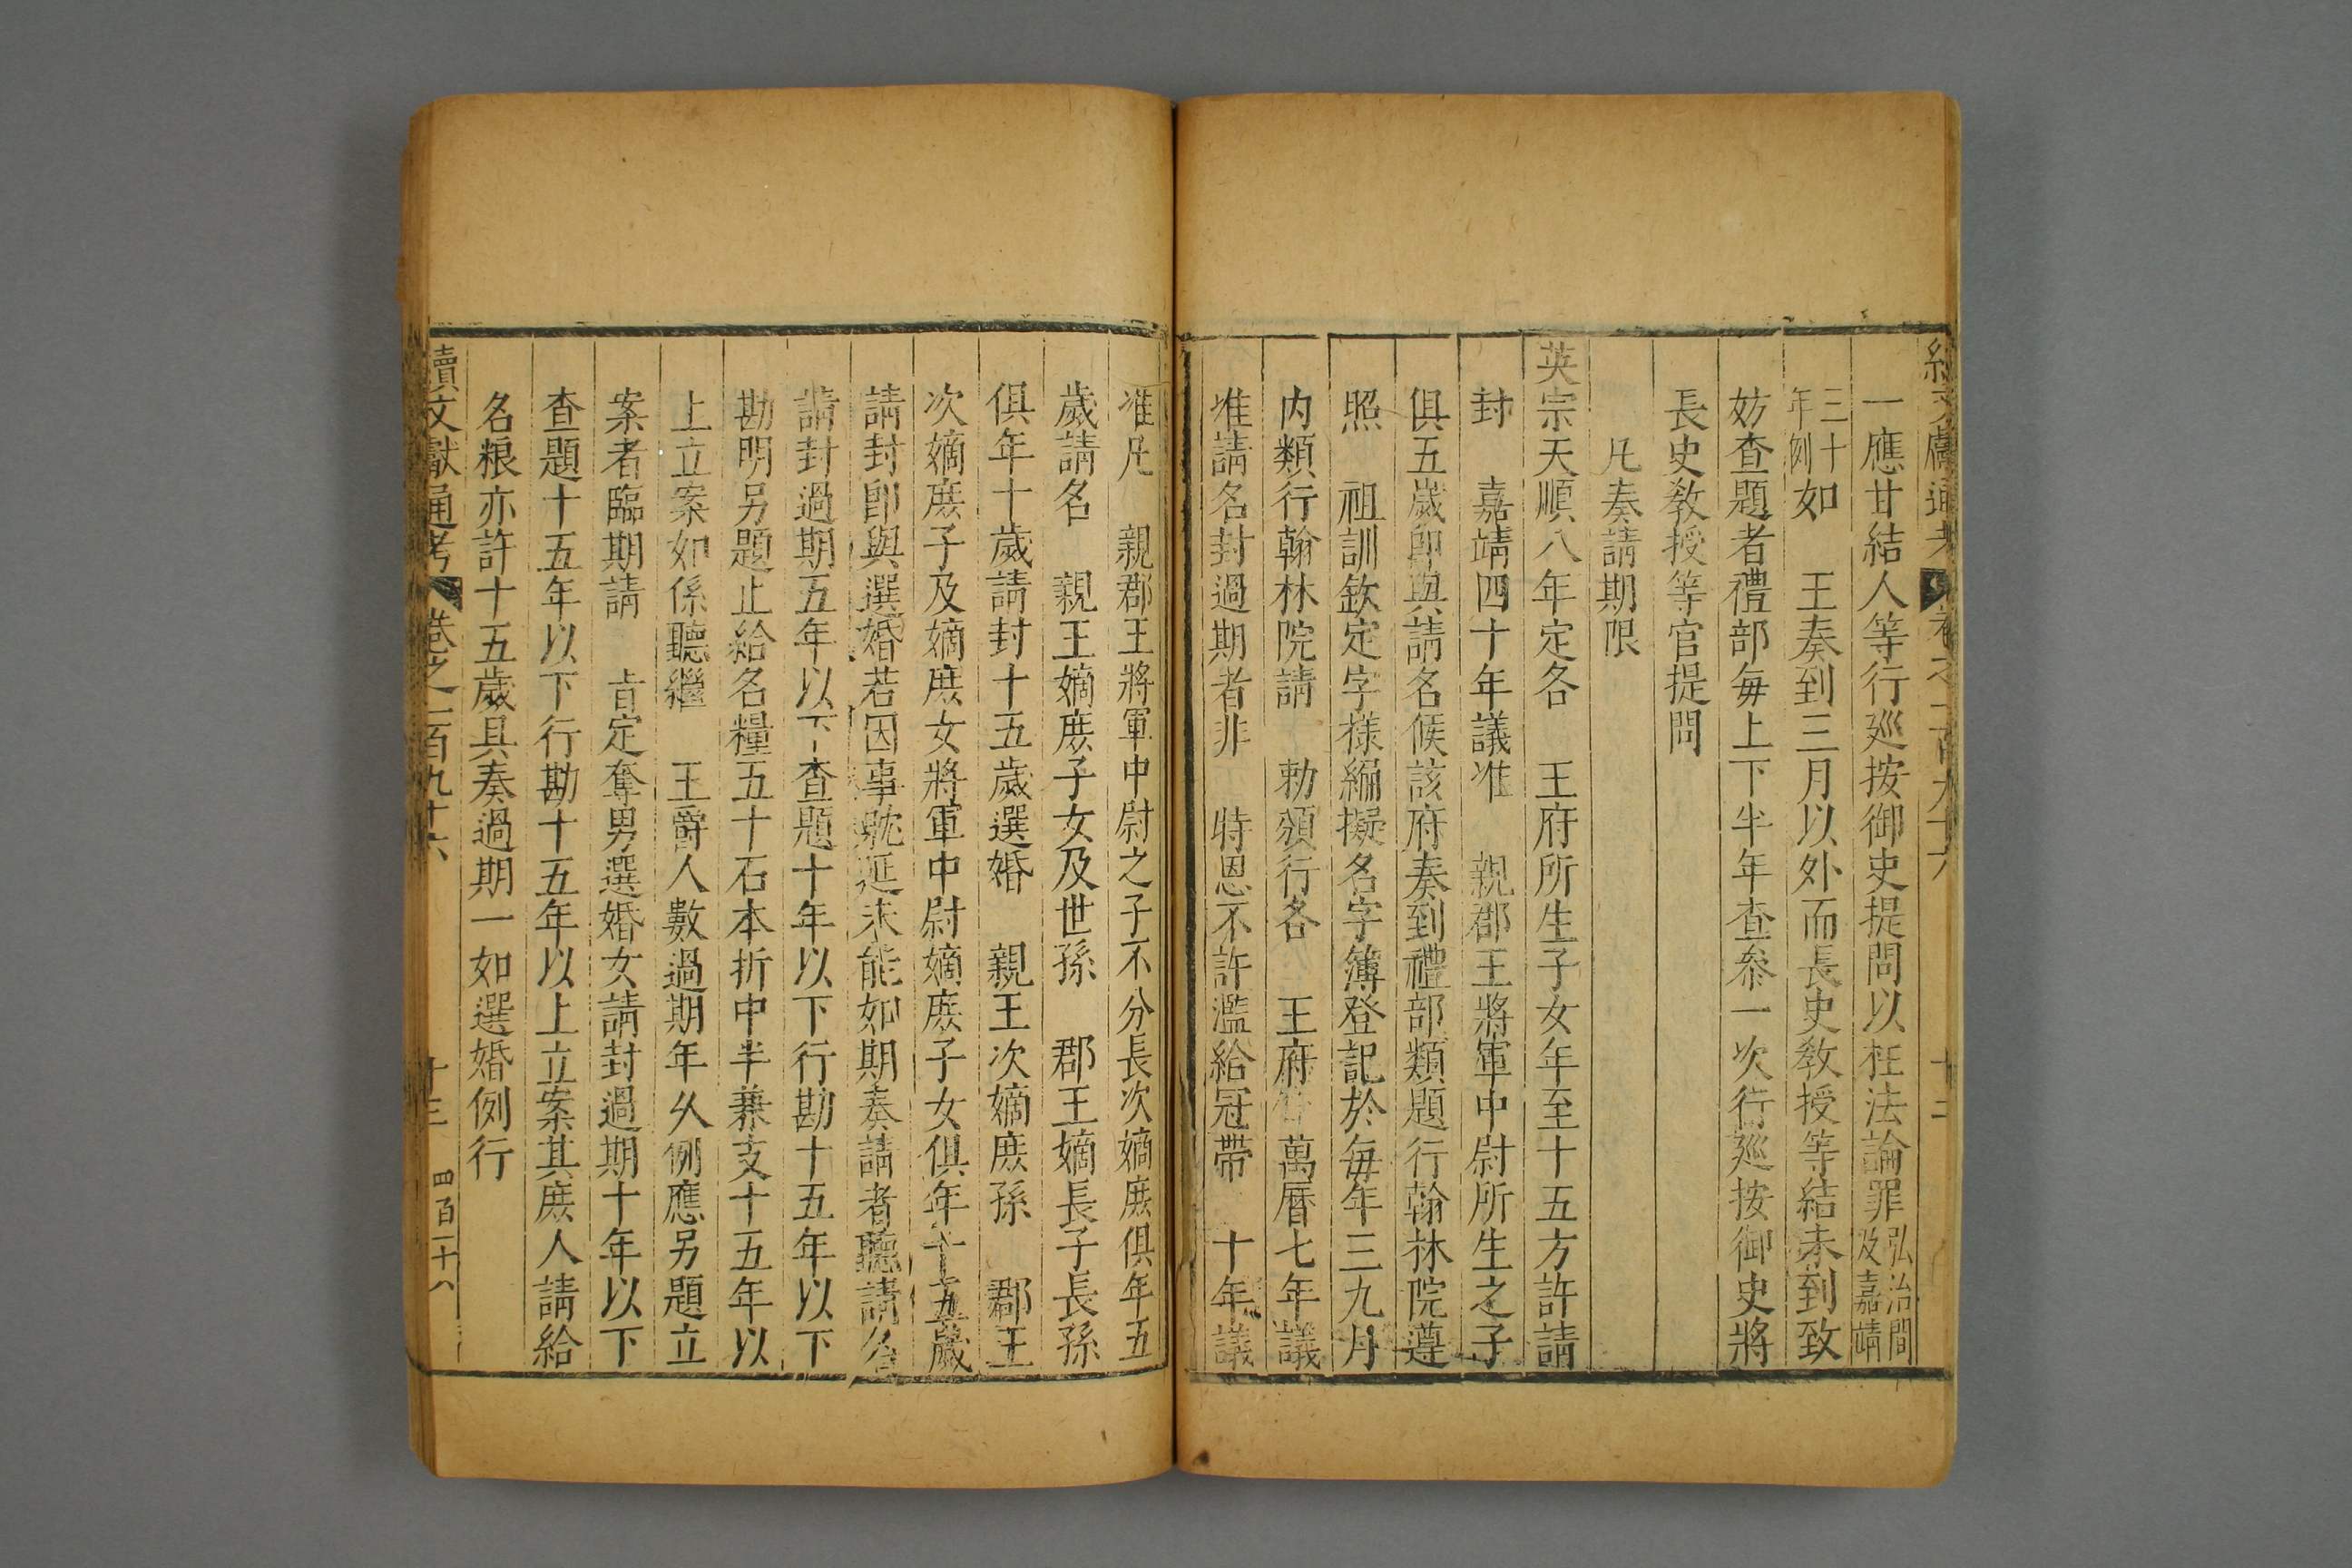 續文獻通考 卷之二百九十六 十二
一應甘結人等行廵按御史提問以枉法論罪弘治間及嘉靖
三十年例如 王奏到三月以外而長史敎授等結未到致
妨查題者禮部每上下半年查叅一次行廵按御史將
長史敎授等官提問
凡奏請期限
英宗天順八年定各 王府所生子女年至十五方許請
封 嘉靖四十年議准 親郡王將軍中尉所生之子
俱五歲卽與請名候該府奏到禮部類題行翰林院遵
照 祖訓欽定字樣編擬名字簿登記於每年三九月
內類行翰林院請 勅頒行各 王府 萬曆七年議
准請名封過期者非 特恩不許濫給冠帶 十年議
准凡 親郡王將軍中尉之子不分長次嫡庶俱年五
歲請名 親王嫡庶子女及世孫 郡王嫡長子長孫
俱年十歲請封十五歲選婚 親王次嫡庶孫 郡王
次嫡庶子及嫡庶女將軍中尉嫡庶子女俱年十五歲
請封卽與選婚若因事躭延未能如期奏請者聽請名
請封過期五年以下查題十年以下行勘十五年以下
勘明另題止給名糧五十石本折中半兼支十五年以
上立案如係聽繼 王爵人數過期年久例應另題立
案者臨期請 旨定奪男選婚女請封過期十年以下
查題十五年以下行勘十五年以上立案其庶人請給
名粮亦許十五歲具奏過期一如選婚例行
續文獻通考 卷之二百九十六 十三 四百一十八